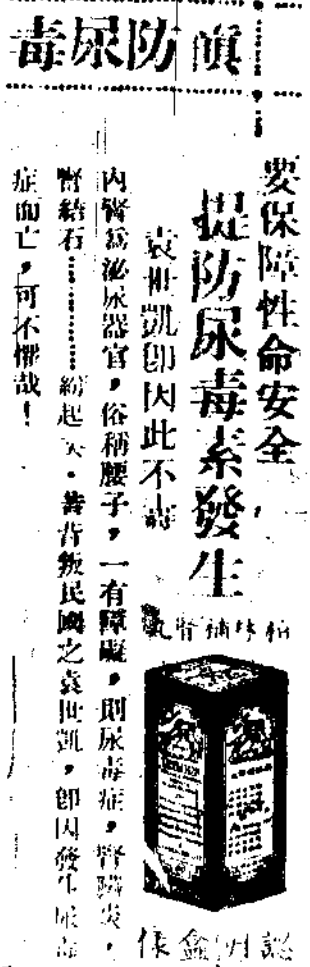 慎防尿毒
要保障性命安全
提防尿毒素發生
袁世凱卽因此不壽
柏林補腎
內腎爲泌尿器官，俗稱腰子，一有障礙，則尿毒症，腎臟炎，
腎結石…………紛起矣．昔背叛民國之袁世凱，卽因發生尿毒
症而亡，可不懼哉！
認明盒樣